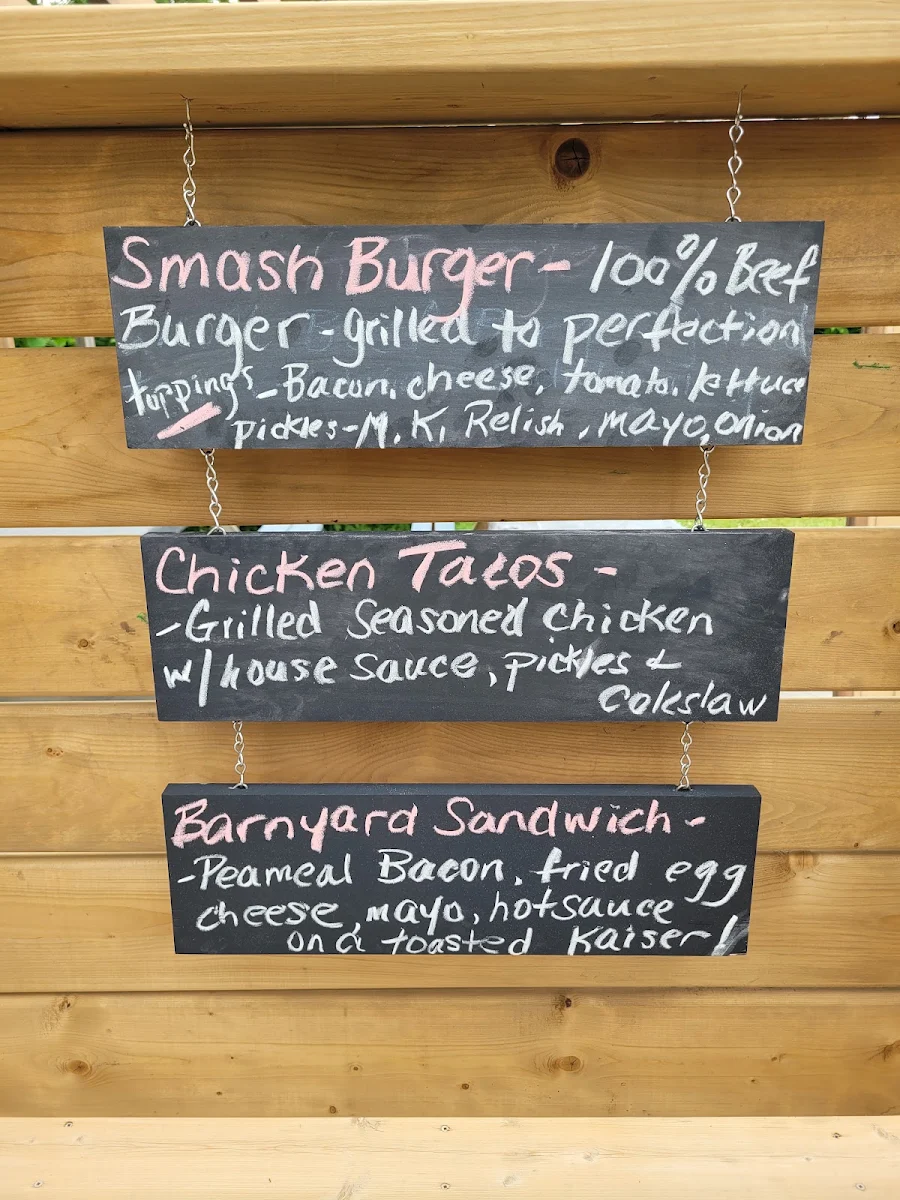 Smash Burger - 100% Beef
Burger - grilled to perfection
toppings - Bacon, cheese, tomato, lettuce
pickles - M, K, Relish, mayo, onion
Chicken Tacos -
- Grilled Seasoned chicken
w/ house sauce, pickles &
Coleslaw
Barnyard Sandwich -
- Peameal Bacon, fried egg
cheese, mayo, hot sauce
on a toasted Kaiser!